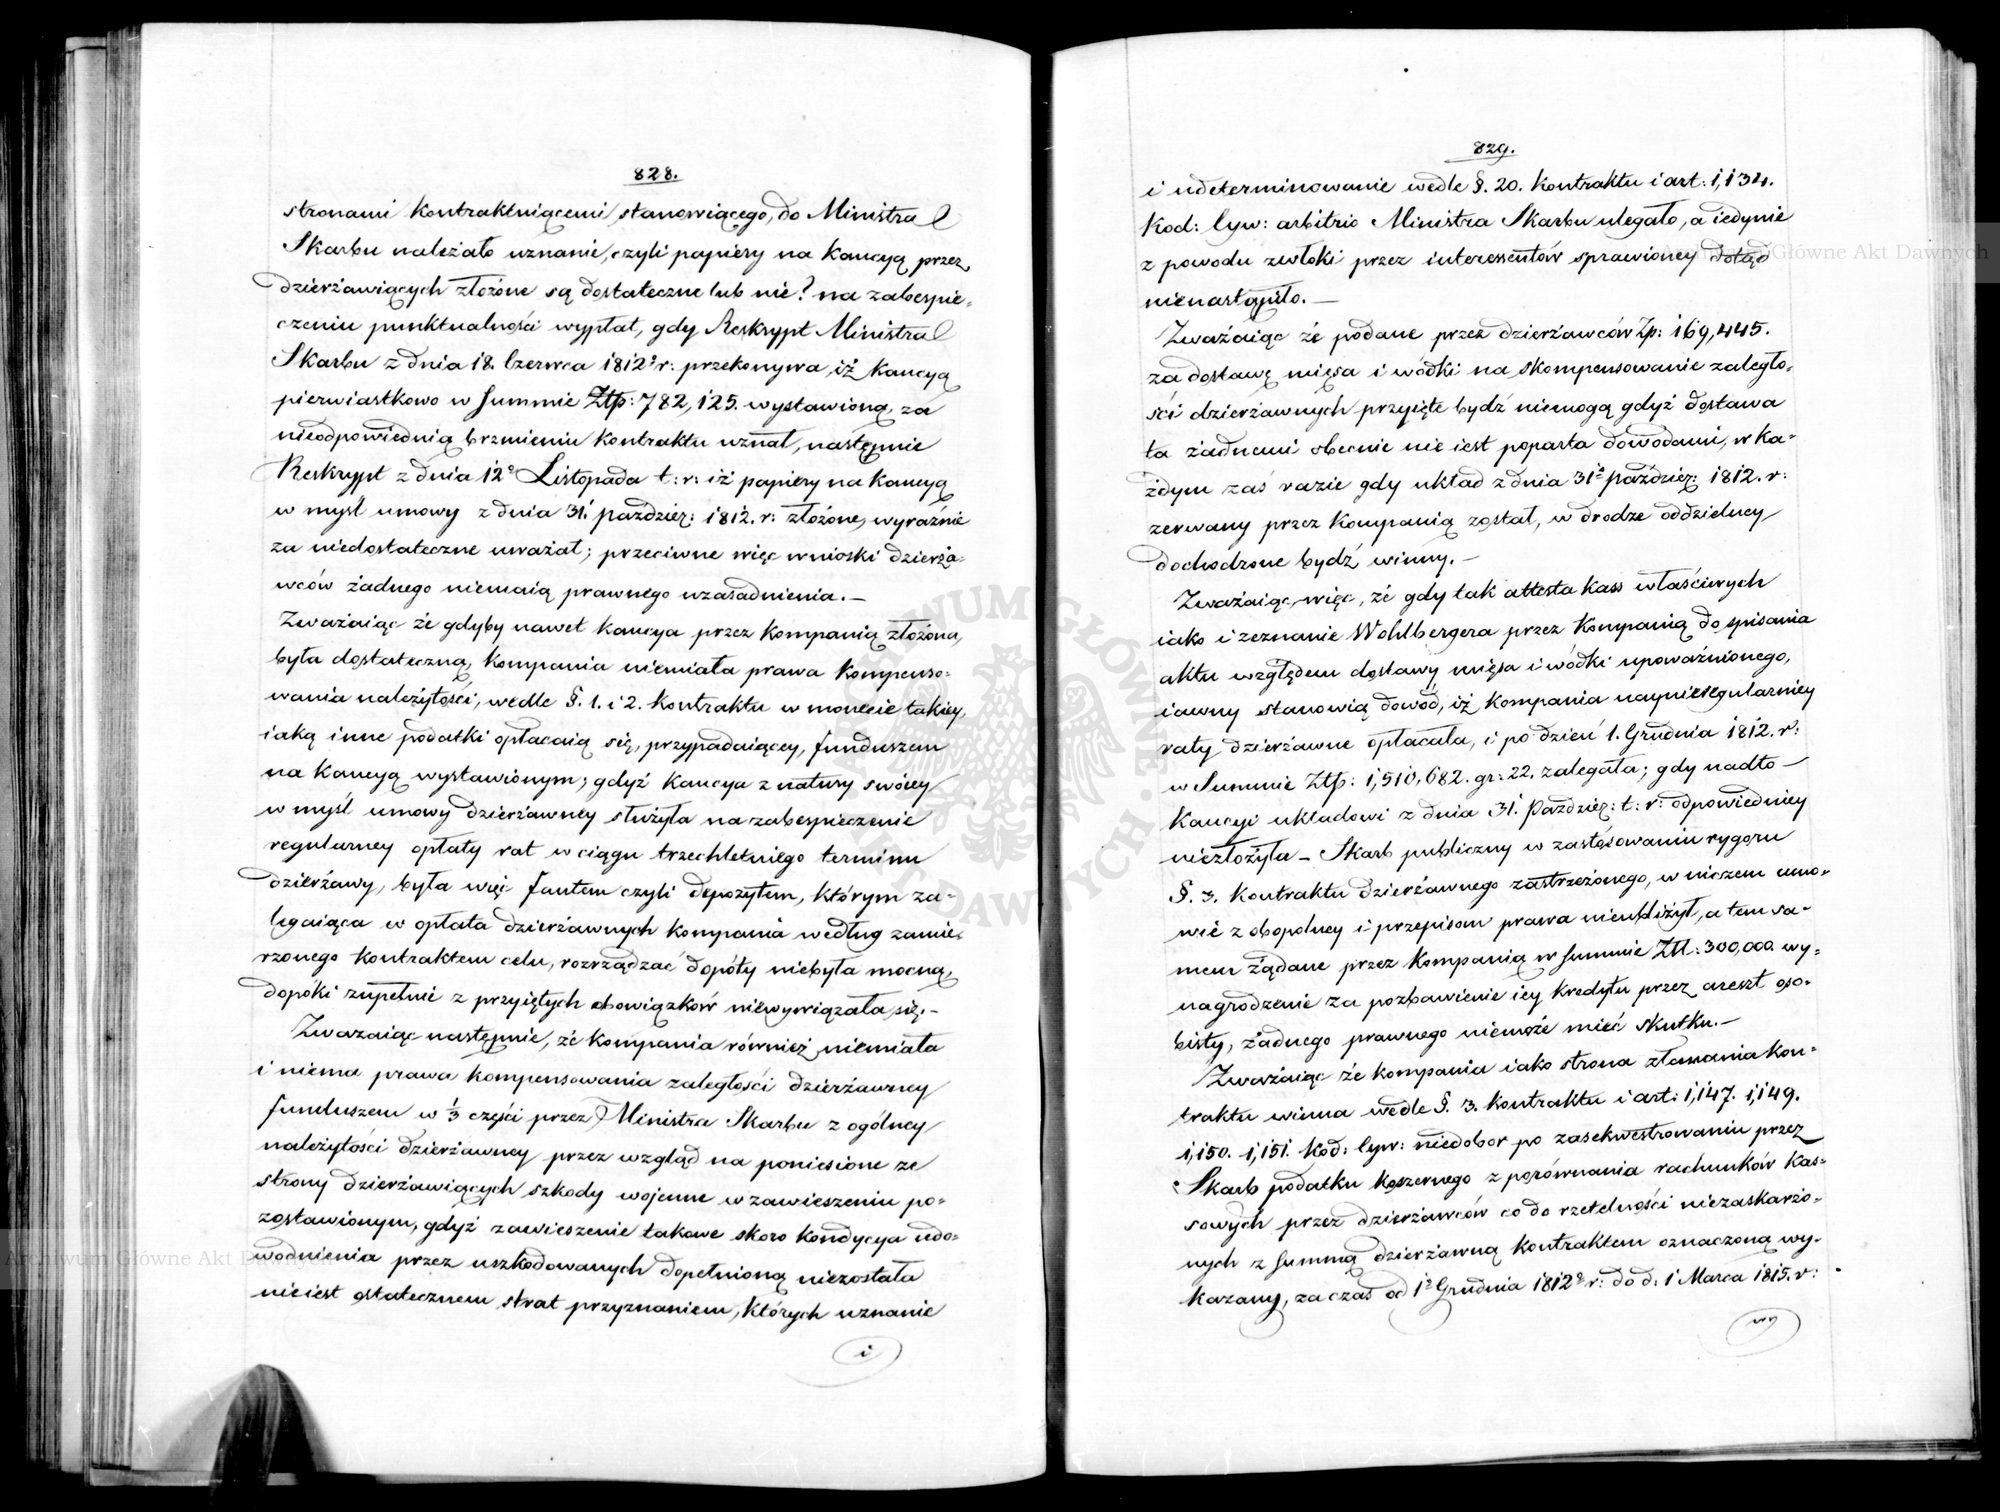 828.
stronami kontraktuiącemi stanowiącego, do Ministra
Skarbu należało uznanie, czyli papiery na kaucyą przez
dzierżawiących złożone są dostateczne lub nie? na zabespie-
czeniu punktualności wypłat, gdy Reskrypt Ministra
Skarbu z dnia 18. Czerwca 1812º r: przekonywa, iż kaucyą
pierwiastkowo w summie Złtp: 782,125. wystawioną, za
nieodpowiednią brzmieniu kontraktu uznał, następnie
Reskrypt z dnia 12º Listopada t: r: iż papiery na kaucyą
w myśl umowy z dnia 31. paźdźier: 1812. r: złożone, wyraźnie
za niedostateczne uważał; przeciwne więc wnioski dzierża-
wców żadnego niemaią prawnego uzasadnienia. —
Zważaiąc że gdyby nawet kaucya przez kompanią złożona,
była dostateczną, kompania niemiała prawa kompenso-
wania należytości, wedle §. 1. i 2. kontraktu w monecie takiey,
iaką inne podatki opłacaią się, przypadaiącey, funduszem
na kaucyą wystawionym; gdyż kaucya z natury swóiey
w myśl umowy dzierżawney służyła na zabespieczenie
regularney opłaty rat w ciągu trzechletniego terminu
dzierżawy, była więc fantem czyli depozytem, którym za-
legaiąca w opłata dzierżawnych kompania według zamie-
rzonego kontraktem celu, rozrządzać dopóty niebyła mocną,
dopóki zupełnie z przyiętych obowiązków niewywiązała się. —
Zważaiąc następnie, że kompania również niemiała
i niema prawa kompensowania zaległości dzierżawney
funduszem w 1/3 części przez Ministra Skarbu z ogólney
należytości dzierżawney przez wzgląd na poniesione ze
strony dzierżawiących szkody wojenne w zawieszeniu po-
zostawionym, gdyż zawieszenie takowe skoro kondycya udo-
wodnienia przez uszkodowanych dopełnioną niezostała
nieiest ostatecznem strat przyznaniem, których uznanie
i
829.
i udeterminowanie wedle §. 20. kontraktu i art: 1,134.
Kod: Cyw: arbitrio Ministra Skarbu ulegało, a iedynie
z powodu zwłoki przez interessentów sprawioney dotąd
nienastąpiło. —
Zważaiąc że podane przez dzierżawców Zp: 169,445.
za dostawę mięsa i wódki na skompensowanie zaległo-
ści dzierżawnych przyięte bydź niemogą gdyż dostawa
ta żadnemi obecnie nie iest poparta dowodami, w ka-
żdym zaś razie gdy układ z dnia 31º paździer: 1812. r:
zerwany przez kompanią został, w drodze oddzielney
dochodzone bydź winny. —
Zważaiąc więc, że gdy tak attesta kass właściwych
iako i zeznanie Wohlbergera przez kompanią do spisania
aktu względem dostawy mięsa i wódki upoważnionego,
iawny stanowią dowód, iż kompania naynieregularniey
raty dzierżawne opłacała, i po dzień 1. Grudnia 1812. r:
w Summie Złtp: 1,510,682. gr: 22. zalegała; gdy nadto —
kaucyi układowi z dnia 31. Paździer: t: r: odpowiedniey
niezłożyła — Skarb publiczny w zastosowaniu rygoru
§. 3. kontraktu dzierżawnego zastrzeżonego, w niczem umo-
wie z obopolney i przepisom prawa nieubliżył, a tem sa-
mem żądane przez kompanią w summie Ztl: 300,000. wy-
nagrodzenie za pozbawienie iey kredytu przez areszt oso-
bisty, żadnego prawnego niemoże mieć skutku. —
Zważaiąc że kompania iako strona złamania kon-
traktu winna wedle §. 3. kontraktu i art: 1,147. 1,149.
1,150. 1,151. Kod: Cyw: niedobor po zasekwestrowaniu przez
Skarb podatku koszernego z porównania rachunków kas-
sowych przez dzierżawców co do rzetelności niezaskarżo-
nych z summą dzierżawną kontraktem oznaczoną wy-
kazany, za czas od 1º Grudnia 1812º r: do d: 1 Marca 1815. r:
wy
Archiwum Główne Akt Dawnych
Archiwum Główne Akt Dawnych
ARCHIWUM GŁÓWNE AKT DAWNYCH